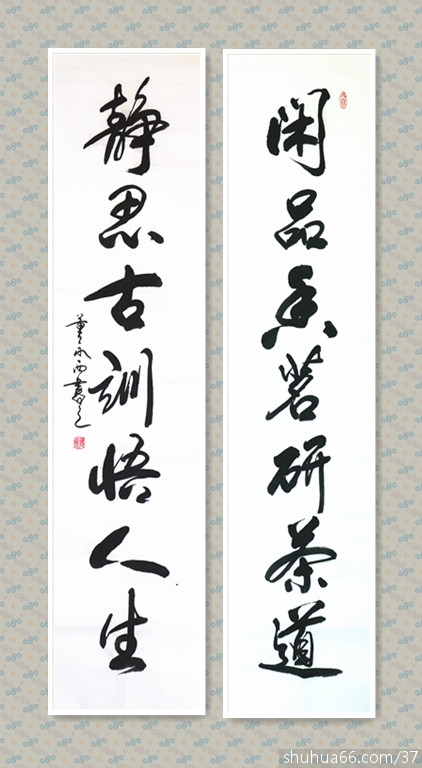 闲品香茗研茶道
静思古训悟人生
董 书之
shuhua66.com/37